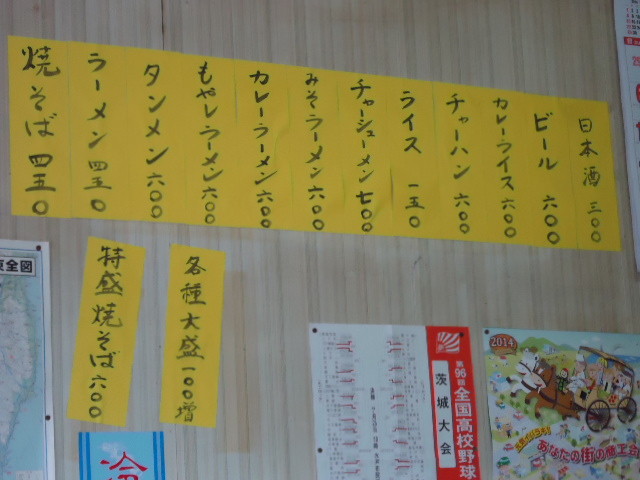 日本酒 三〇〇
ビール 六〇〇
カレーライス 六〇〇
チャーハン 六〇〇
ライス 一五〇
チャーシューメン 七〇〇
みそラーメン 六〇〇
カレーラーメン 六〇〇
もやしラーメン 六〇〇
タンメン 六〇〇
ラーメン 四五〇
焼そば 四五〇
各種大盛一〇〇増
特盛焼そば六〇〇
東全図
第96回 全国高校野球
茨城大会
2014
あなたの街の商工会